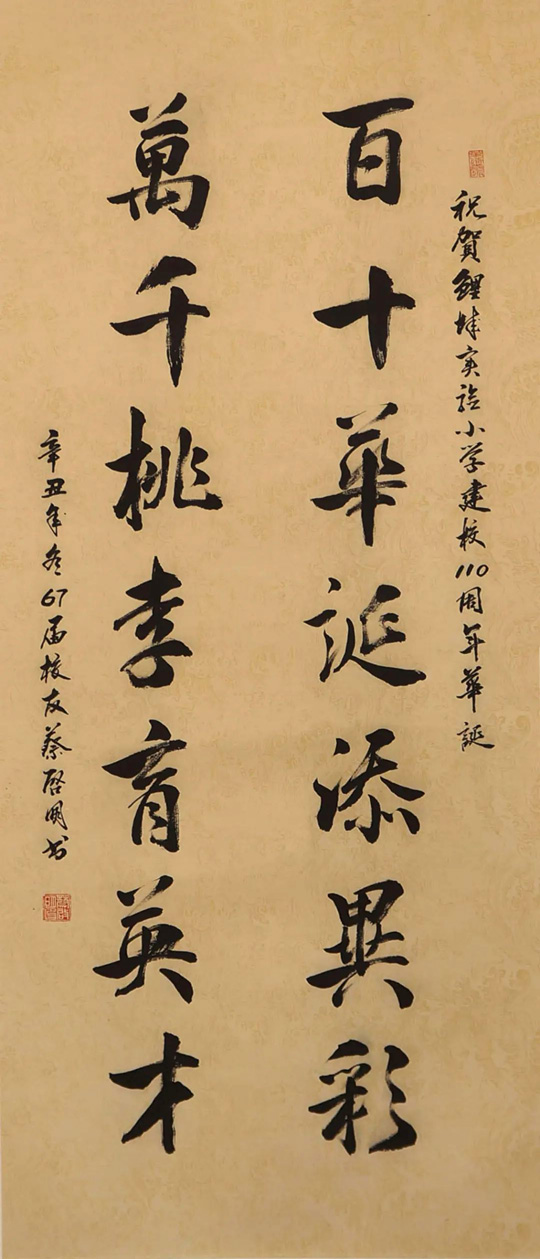 祝贺鲤城实验小学建校110周年华誕
百十華誕添異彩
萬千桃李育英才
辛丑年冬67届校友蔡啓明书